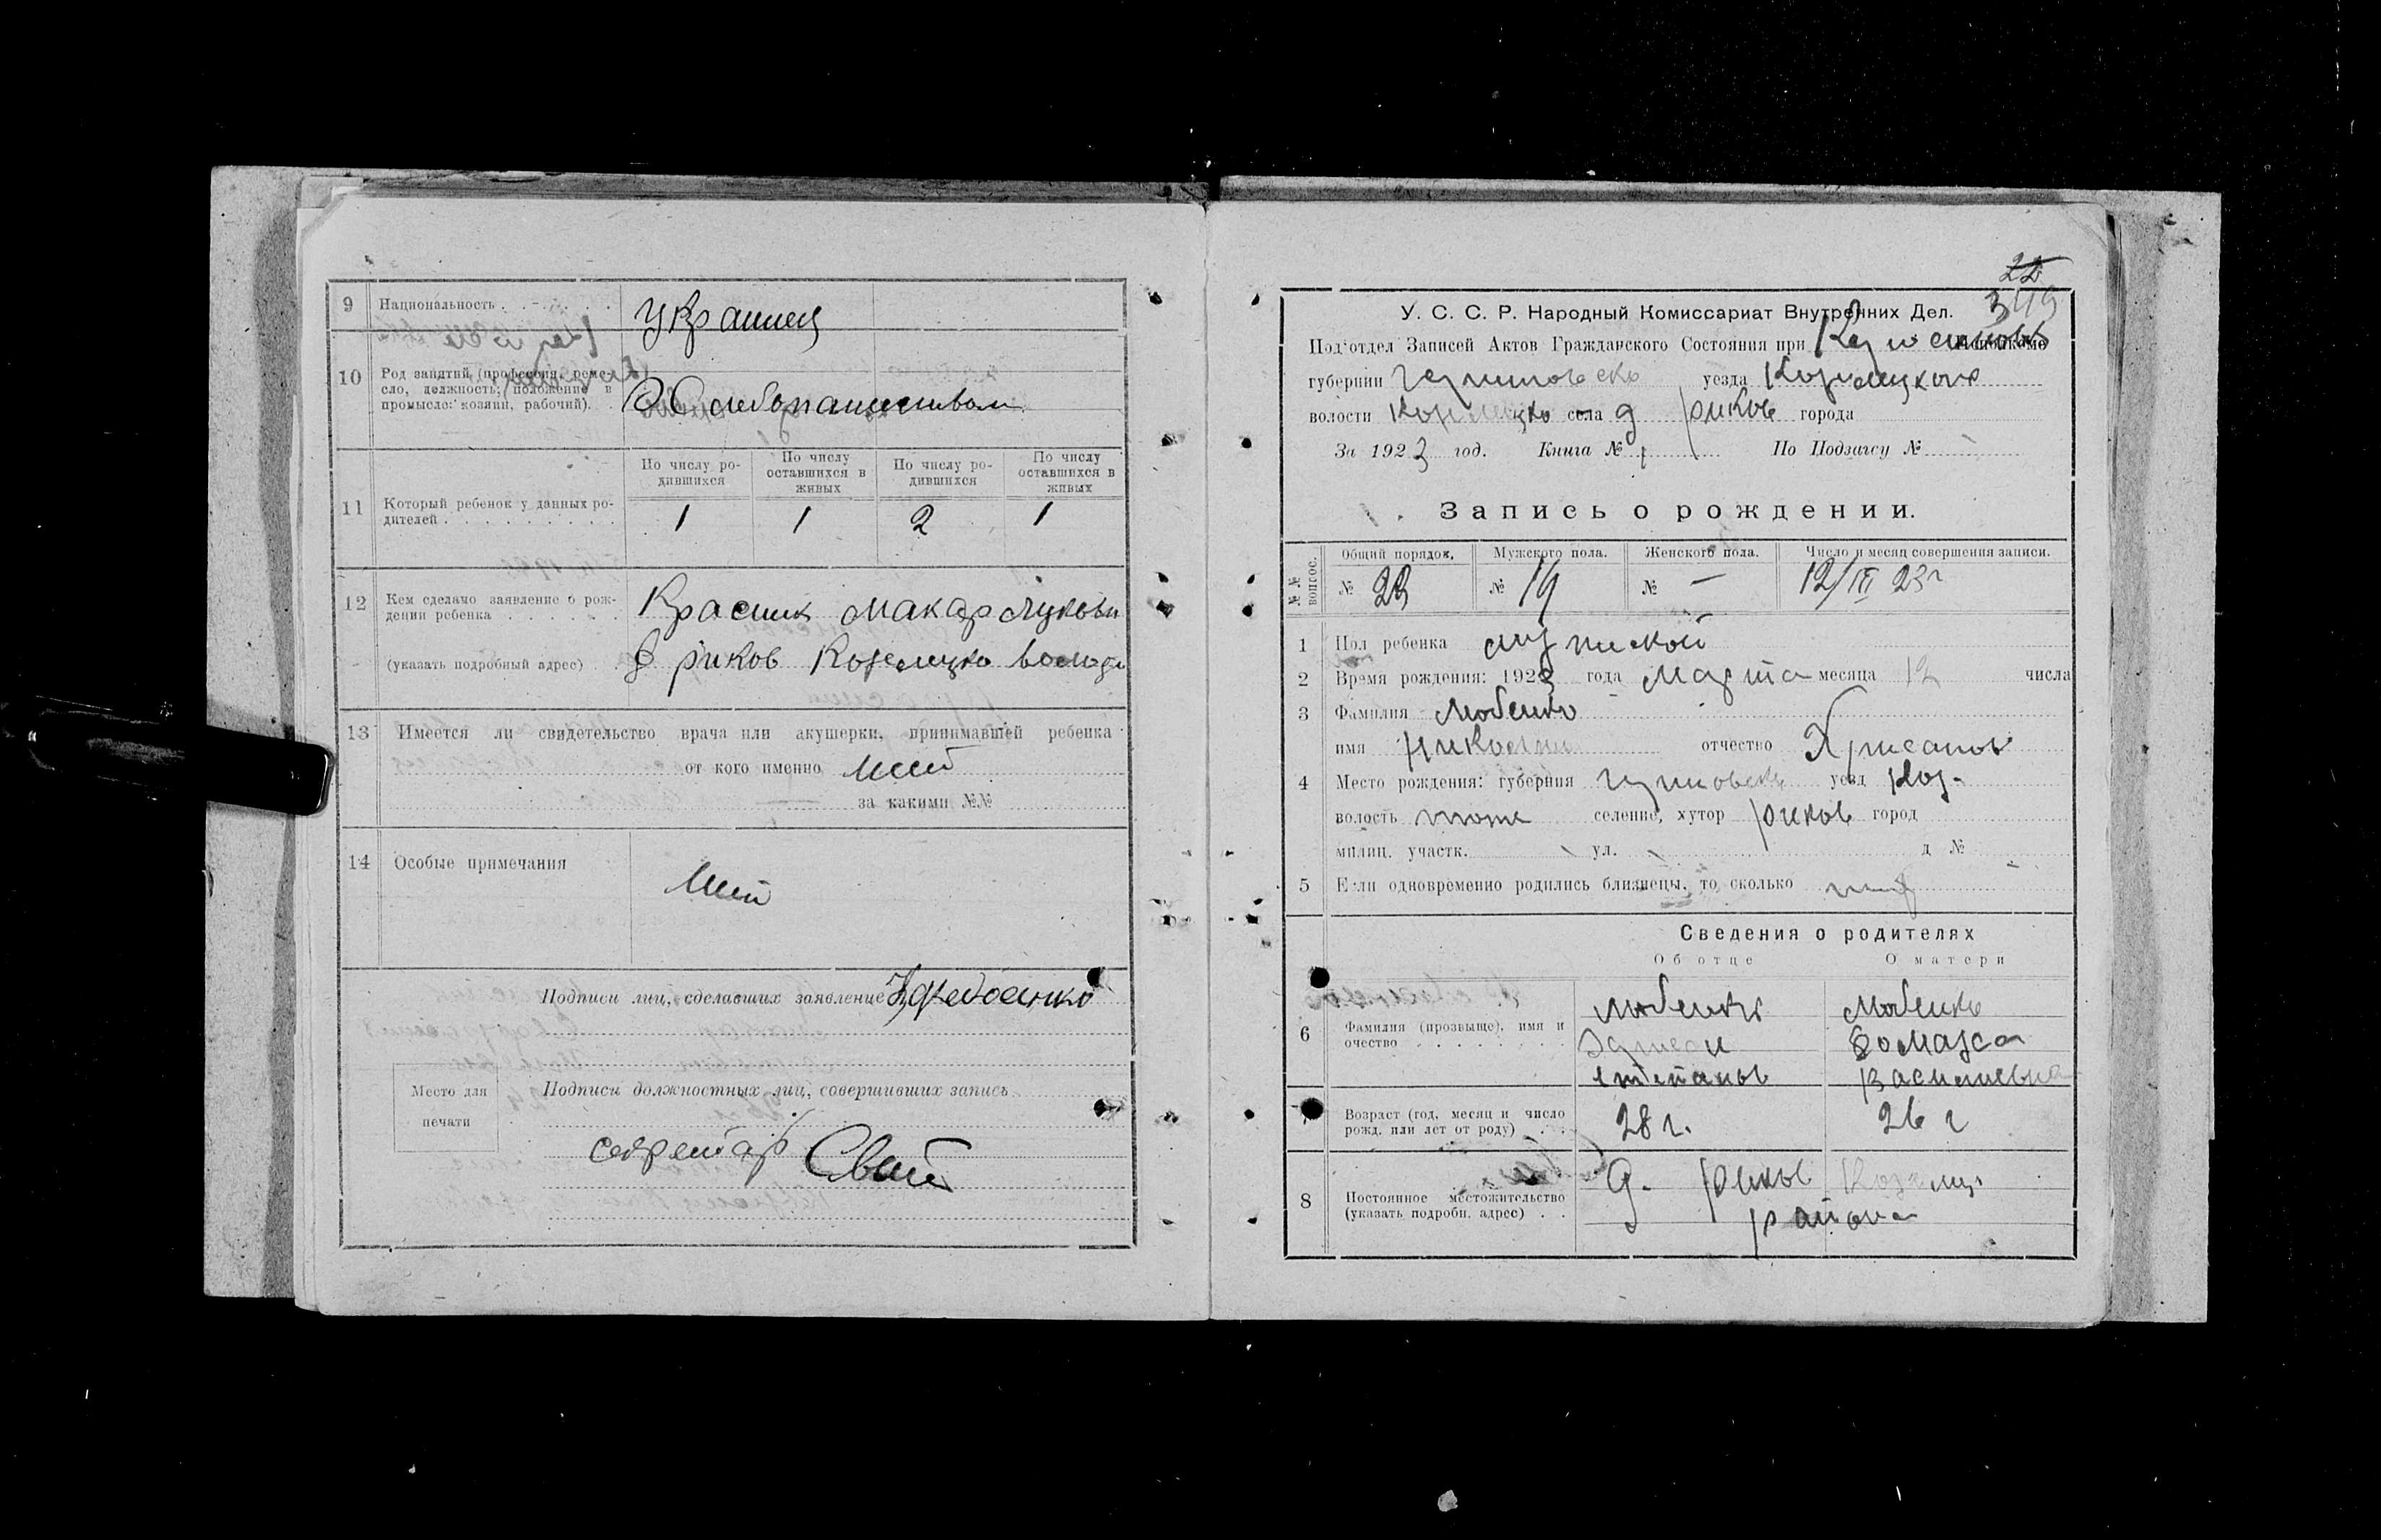 9 Национальность
Украинец
10 Род занятий (профессия, реме-
сло, должность, положение в
промысле: хозяин, рабочий).
Хлебопашеством
По числу ро-
дившихся
По числу
оставшихся в
живых
По числу ро-
дившихся
По числу
оставшихся в
живых
11 Который ребенок у данных ро-
дителей
1 1 2 1
12 Кем сделано заявление о рож-
дении ребенка
Красник Макар Лукович
(указать подробный адрес)
д риков Козелецко волости
13 Имеется ли свидетельство врача или акушерки, принимавшей ребенка
от кого именно нет
за какими №№
14 Особые примечания
Нет
Подписи лиц, сделавших заявление
Подписи должностных лиц, совершивших запись
Место для
печати
секретар
22
349
У. С. С. Р. Народный Комиссариат Внутренних Дел.
Под'отдел Записей Актов Гражданского Состояния при
губернии Черниговско уезда Козелецкого
волости Козелецко села д риков города
За 1923 год. Книга № 1 По Подзагсу №
Запись о рождении.
№№ вопрос.
Общий порядок. Мужского пола. Женского пола. Число и месяц совершения записи.
№ 23 № 14 № — 12/III 23г
1 Пол ребенка мужской
2 Время рождения: 1923 года Марта месяца 12 числа
3 Фамилия Любенко
имя Николай отчество Хрисанов
4 Место рождения: губерния Черниговско уезд Коз-
волость тоже селение, хутор риков город
милиц. участк. ул. д №
5 Если одновременно родились близнецы, то сколько нет
Сведения о родителях
Об отце О матери
6 Фамилия (прозвыще), имя и
очество
Любенко Любенко
Домаха
Степанов Василиевна
7 Возраст (год, месяц и число
рожд. или лет от роду)
28 г. 26 г
8 Постоянное местожительство
(указать подробн. адрес)
д. риков Козелец.
района